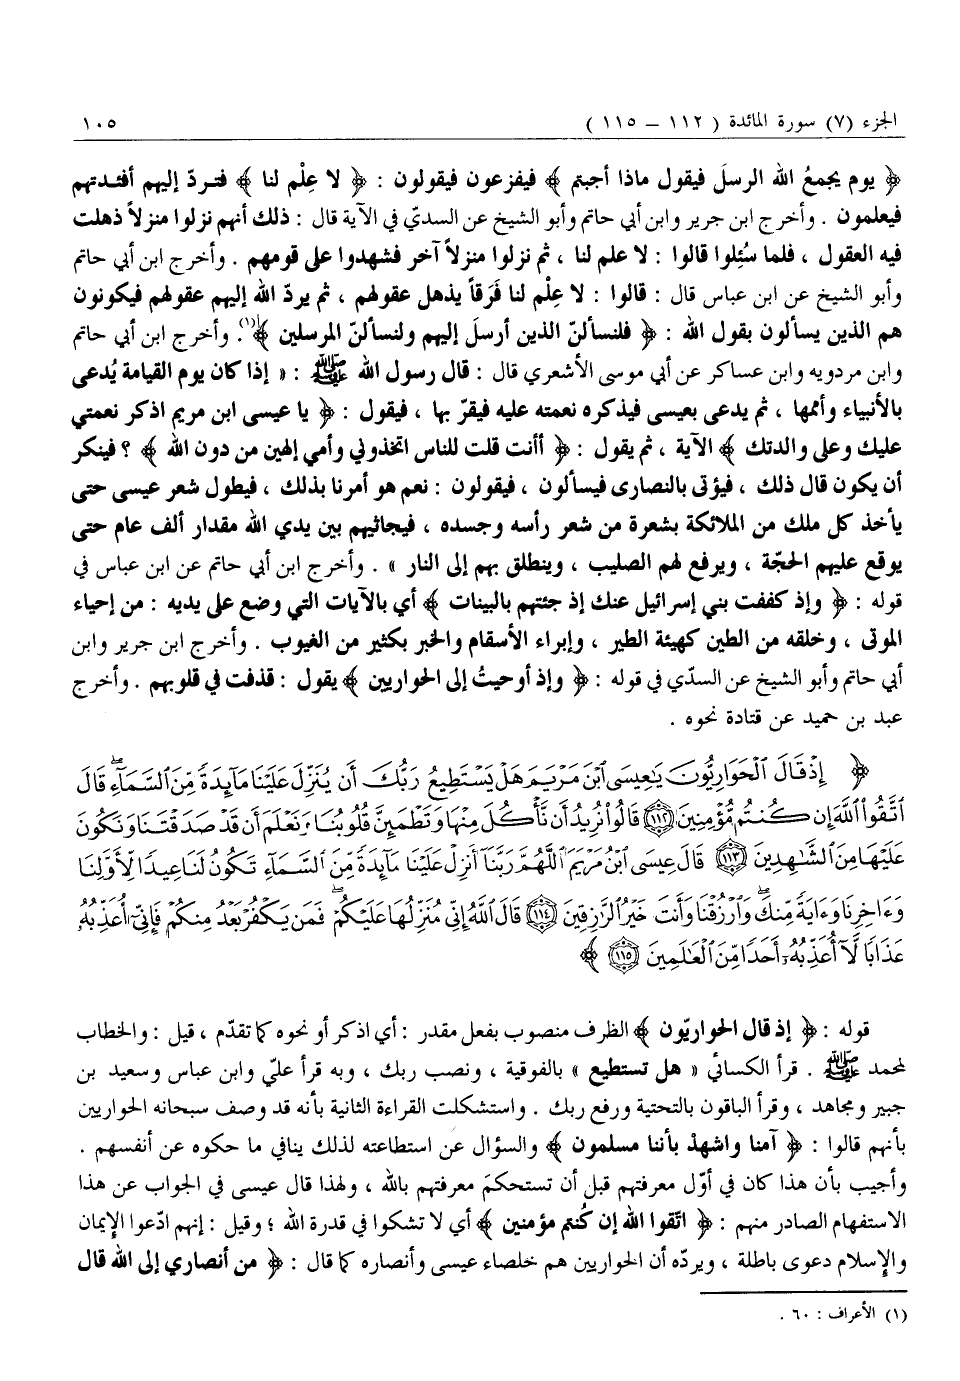 الجزء (٧) سورة المائدة ( ١١٢ – ١١٥ ) ١٠٥
﴿ يوم يجمعُ الله الرسلَ فيقول ماذا أجبتم ﴾ فيفزعون فيقولون : ﴿ لا عِلْم لنا ﴾ فتردّ إليهم أفئدتهم
فيعلمون . وأخرج ابن جرير وابن أبي حاتم وأبو الشيخ عن السديّ في الآية قال : ذلك أنهم نزلوا منزلاً ذهلت
فيه العقول ، فلما سُئِلوا قالوا : لا علم لنا ، ثم نزلوا منزلاً آخر فشهدوا على قومهم . وأخرج ابن أبي حاتم
وأبو الشيخ عن ابن عباس قال : قالوا : لا عِلْم لنا فَرَقاً يذهل عقولهم ، ثم يردّ الله إليهم عقولهم فيكونون
هم الذين يسألون بقول الله : ﴿ فلنسألنّ الذين أرسلَ إليهم ولنسألنّ المرسلين ﴾(١). وأخرج ابن أبي حاتم
وابن مردويه وابن عساكر عن أبي موسى الأشعري قال : قال رسول الله ﷺ : « إذا كان يوم القيامة يُدعى
بالأنبياء وأممها ، ثم يدعى بعيسى فيذكره نعمته عليه فيقرّ بها ، فيقول : ﴿ يا عيسى ابن مريم اذكر نعمتي
عليك وعلى والدتك ﴾ الآية ، ثم يقول : ﴿ أأنت قلت للناس اتخذوني وأمي إلهين من دون الله ﴾ ؟ فينكر
أن يكون قال ذلك ، فيؤتى بالنصارى فيسألون ، فيقولون : نعم هو أمرنا بذلك ، فيطول شعر عيسى حتى
يأخذ كل ملك من الملائكة بشعرة من شعر رأسه وجسده ، فيجاثيهم بين يدي الله مقدار ألف عام حتى
يوقع عليهم الحجّة ، ويرفع لهم الصليب ، وينطلق بهم إلى النار » . وأخرج ابن أبي حاتم عن ابن عباس في
قوله : ﴿ وإذ كففت بني إسرائيل عنك إذ جئتهم بالبينات ﴾ أي بالآيات التي وضع على يديه : من إحياء
الموتى ، وخلقه من الطين كهيئة الطير ، وإبراء الأسقام والخبر بكثير من الغيوب . وأخرج ابن جرير وابن
أبي حاتم وأبو الشيخ عن السدّي في قوله : ﴿ وإذ أوحيتُ إلى الحواريين ﴾ يقول : قذفت في قلوبهم . وأخرج
عبد بن حميد عن قتادة نحوه .
﴿ إِذْ قَالَ ٱلْحَوَارِيُّونَ يَٰعِيسَى ٱبْنَ مَرْيَمَ هَلْ يَسْتَطِيعُ رَبُّكَ أَن يُنَزِّلَ عَلَيْنَا مَآئِدَةً مِّنَ ٱلسَّمَآءِۖ قَالَ
ٱتَّقُوا۟ ٱللَّهَ إِن كُنتُم مُّؤْمِنِينَ ١١٢ قَالُوا۟ نُرِيدُ أَن نَّأْكُلَ مِنْهَا وَتَطْمَئِنَّ قُلُوبُنَا وَنَعْلَمَ أَن قَدْ صَدَقْتَنَا وَنَكُونَ
عَلَيْهَا مِنَ ٱلشَّٰهِدِينَ ١١٣ قَالَ عِيسَى ٱبْنُ مَرْيَمَ ٱللَّهُمَّ رَبَّنَآ أَنزِلْ عَلَيْنَا مَآئِدَةً مِّنَ ٱلسَّمَآءِ تَكُونُ لَنَا عِيدًا لِّأَوَّلِنَا
وَءَاخِرِنَا وَءَايَةً مِّنكَۖ وَٱرْزُقْنَا وَأَنتَ خَيْرُ ٱلرَّٰزِقِينَ ١١٤ قَالَ ٱللَّهُ إِنِّي مُنَزِّلُهَا عَلَيْكُمْۖ فَمَن يَكْفُرْ بَعْدُ مِنكُمْ فَإِنِّىٓ أُعَذِّبُهُۥ
عَذَابًا لَّآ أُعَذِّبُهُۥٓ أَحَدًا مِّنَ ٱلْعَٰلَمِينَ ١١٥ ﴾
قوله : ﴿ إذ قال الحواريّون ﴾ الظرف منصوب بفعل مقدر : أي اذكر أو نحوه كما تقدّم ، قيل : والخطاب
لمحمد ﷺ . قرأ الكسائي « هل تستطيع » بالفوقية ، ونصب ربك ، وبه قرأ عليّ وابن عباس وسعيد بن
جبير ومجاهد ، وقرأ الباقون بالتحتية ورفع ربك . واستشكلت القراءة الثانية بأنه قد وصف سبحانه الحواريين
بأنهم قالوا : ﴿ آمنا واشهدْ بأننا مسلمون ﴾ والسؤال عن استطاعته لذلك ينافي ما حكوه عن أنفسهم .
وأجيب بأن هذا كان في أوّل معرفتهم قبل أن تستحكمَ معرفتهم بالله ، ولهذا قال عيسى في الجواب عن هذا
الاستفهام الصادر منهم : ﴿ اتّقوا الله إن كُنتم مؤمنين ﴾ أي لا تشكوا في قدرة الله ؛ وقيل : إنهم ادّعوا الإيمان
والإسلام دعوى باطلة ، ويردّه أن الحواريين هم خلصاء عيسى وأنصاره كما قال : ﴿ من أنصاري إلى الله قال
(١) الأعراف : ٦٠ .